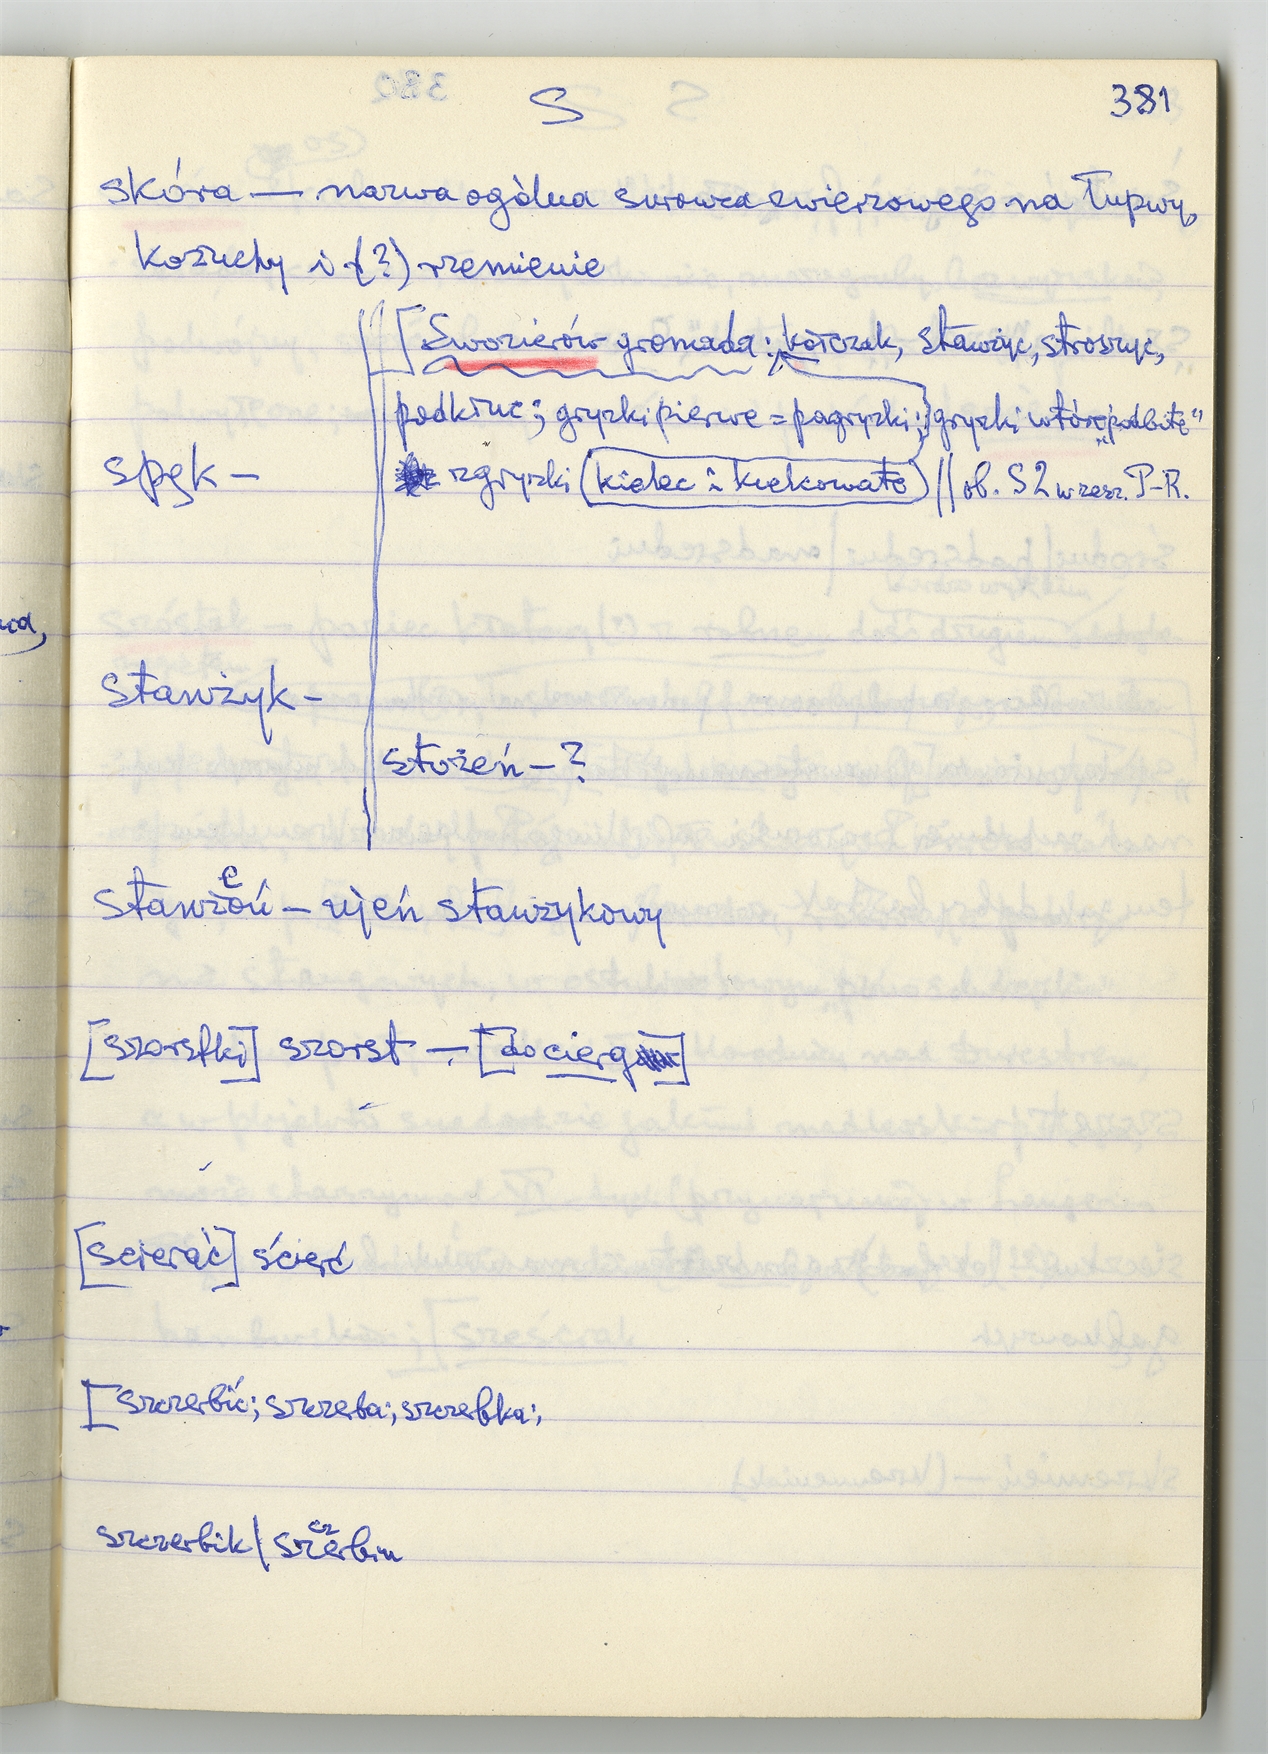 S
381
skóra — nazwa ogólna surowca zwierzowego na łupwy,
kożuchy i (?) rzemienie
[Sworzerów gromada: kółczak, stawżyc, stroszyc,
podkłuć; gryzki pierwe = pagryzki;) gryzki wtóre „podbite"
spęk –
zgryzki (kielec i kielkowate) // ob. S2 w zesz. P-R.
stawżyk –
stożeń – ?
e
stawżoń – ujeń stawżykowy
[szorstki] szorst – [docierg]
[ścierać] ścierć
[szczerbić; szczerba; szczerbka;
cz
szczerbik / szerbin